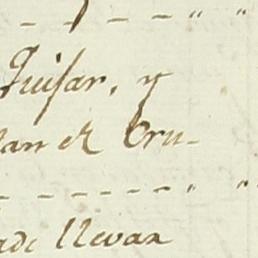 Guisar, y
an el Cru-
ade llevan